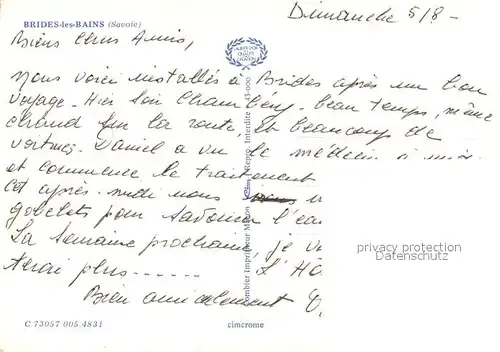 BRIDES-les-BAINS (Savoie)
Dimanche 5/8 -
Biens Chers Amis,
Nous voici installés à Brides après un bon
voyage - Hier soir Chambéry - beau temps, même
chaud sur la route, et beaucoup de
voitures - Daniel a vu le médecin
et commence le traitement
Cet après-midi nous
gobelets pour savourer l'eau
La Semaine prochaine, je
plus ------ L'Hô
Bien amicalement
Combier Imprimeur Mâcon
Repro. Interdite
C 73057 005.4831
cimcrome
privacy protection
Datenschutz